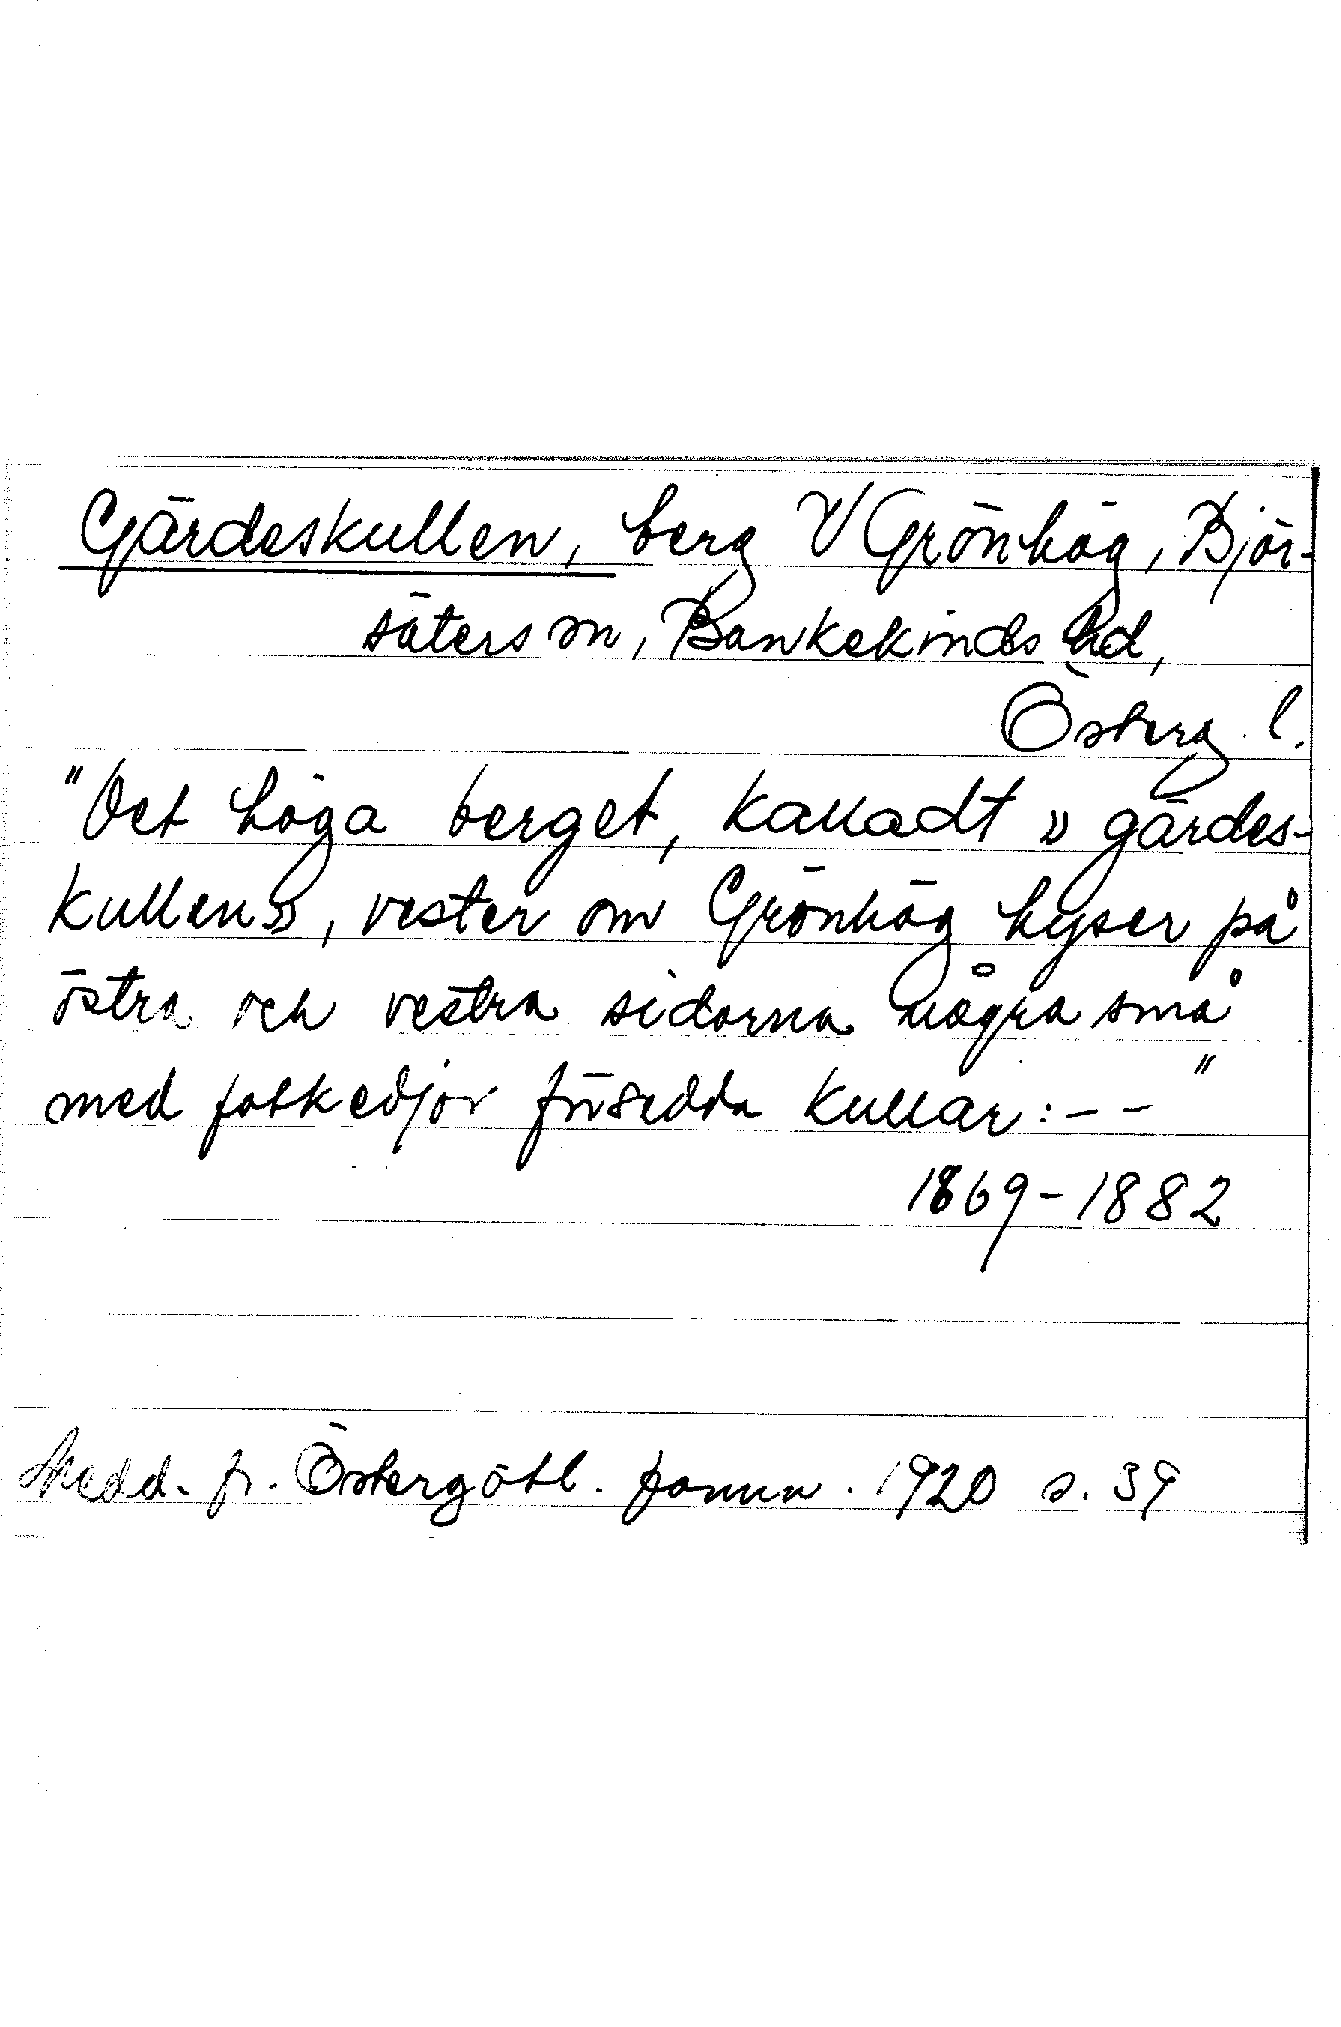 Gärdeskullen, berg V Grönhög, Björ-
säters sn, Bankekinds hd,
Österg. l.
"Det höga berget, kalladt »gärdes-
kullen», vester om Grönhög hyser på
östra och vestra sidorna några små
med fotkedjor försedda kullar: - - "
1869-1882
Medd. fr. Östergötl. fornm. 1920 s. 39